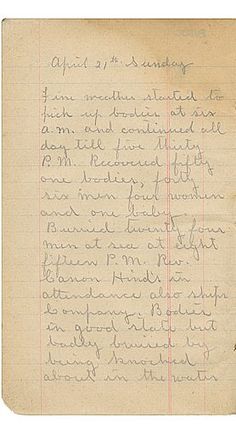 April 21th Sunday
Fine weather started to
pick up bodies at six
a.m. and continued all
day till five thirty
P.M. Recovered fifty
one bodies, forty
six men four women
and one baby.
Burried twenty four
men at sea at eight
fifteen P.M. Rev.
Canon Hinds in
attendance also ships
Company. Bodies
in good state but
badly bruised by
being knocked
about in the water